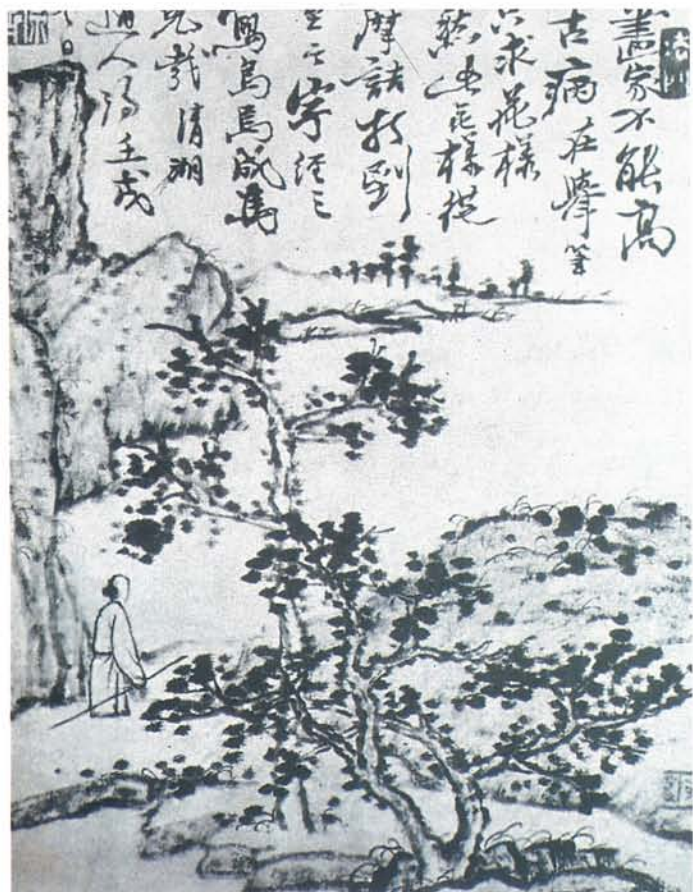 畫家不能高
古病在舉筆
只求花樣
然此花樣從
摩詰打到
至今字經三
寫烏焉成馬
冤哉清湘
人濟壬戌